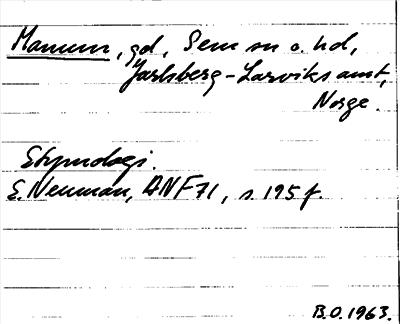 Manum, gd, Sem sn o. hd,
Jarlsberg-Larviks amt,
Norge.
Etymologi.
E. Neuman, ANF 71, s. 195 f.
B.O. 1963.